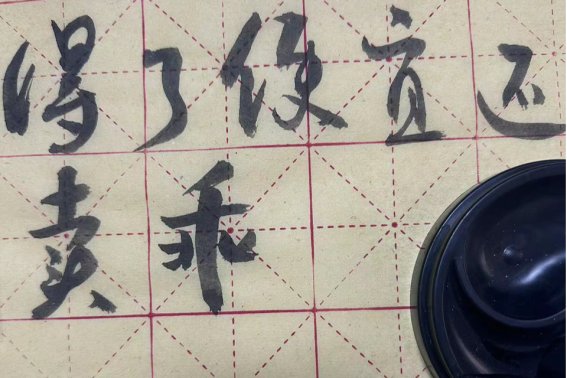 得了便宜还
卖乖